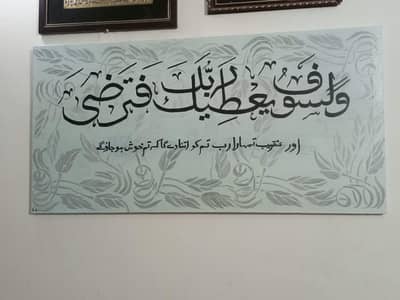 ولسوف يعطيك ربك فترضى
اور عنقریب تمہارا رب تم کو اتنا دے گا کہ تم خوش ہو جاؤ گے